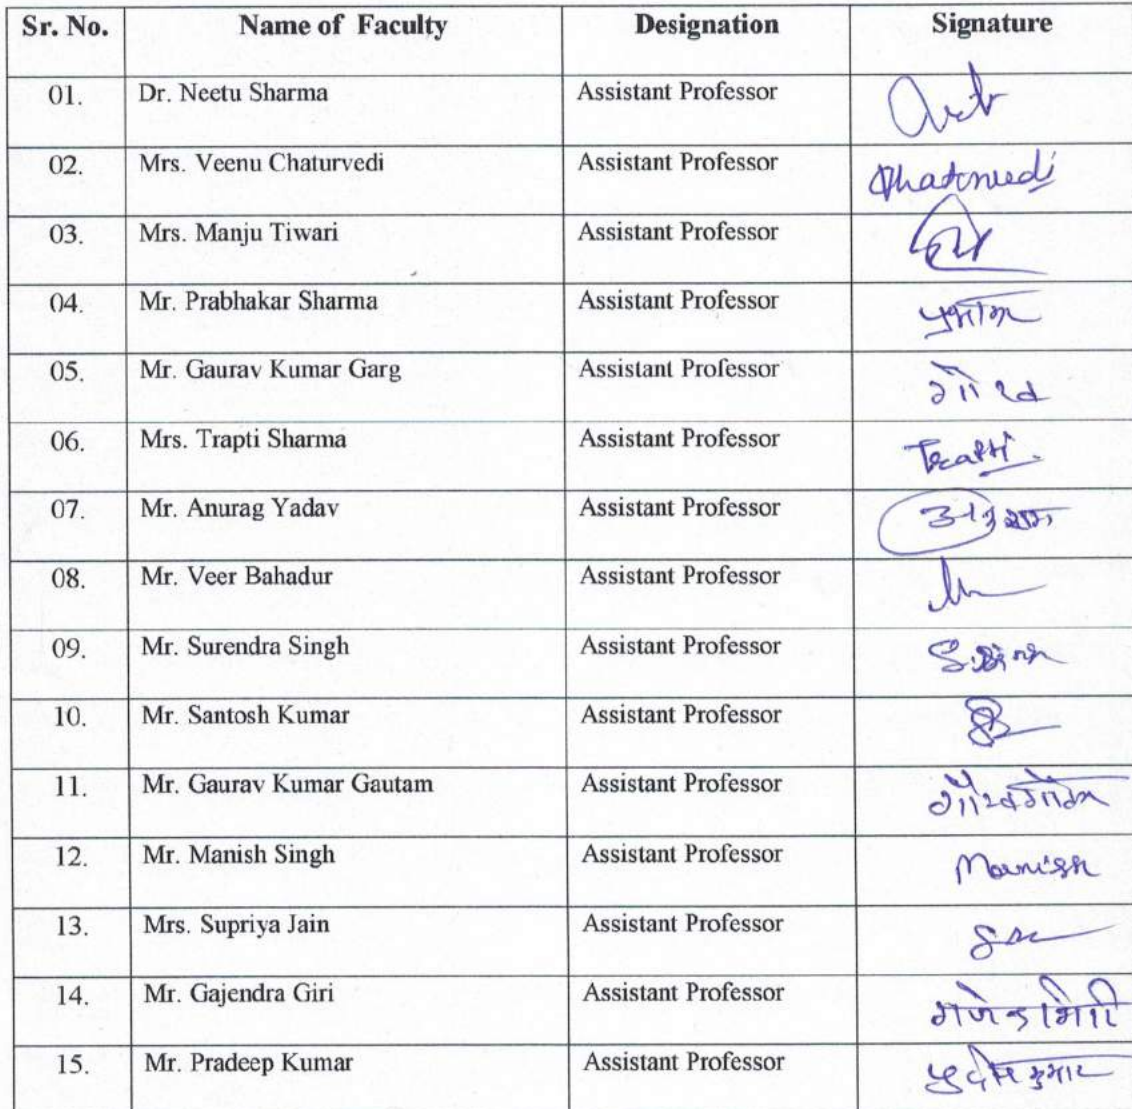 Sr. No. Name of Faculty Designation Signature
01. Dr. Neetu Sharma Assistant Professor
02. Mrs. Veenu Chaturvedi Assistant Professor
03. Mrs. Manju Tiwari Assistant Professor
04. Mr. Prabhakar Sharma Assistant Professor
05. Mr. Gaurav Kumar Garg Assistant Professor गौरव
06. Mrs. Trapti Sharma Assistant Professor Trapti
07. Mr. Anurag Yadav Assistant Professor
08. Mr. Veer Bahadur Assistant Professor
09. Mr. Surendra Singh Assistant Professor
10. Mr. Santosh Kumar Assistant Professor
11. Mr. Gaurav Kumar Gautam Assistant Professor गौरव गौतम
12. Mr. Manish Singh Assistant Professor Manish
13. Mrs. Supriya Jain Assistant Professor
14. Mr. Gajendra Giri Assistant Professor गजेन्द्र गिरी
15. Mr. Pradeep Kumar Assistant Professor प्रदीप कुमार